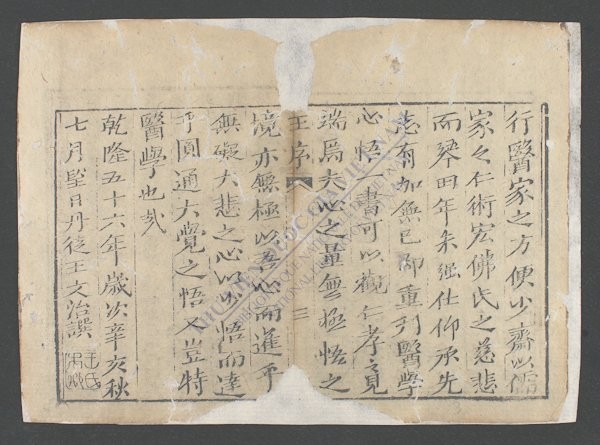 行醫家之方便少齋以儒
家之仁術宏佛氏之慈悲
而琴田年未強仕仰承先
志有加無已即重刊醫學
心悟一書可以觀仁孝
端焉夫心之量無極悟之
王序 三
境亦無極以吾心而進乎
無礙大悲之心以吾悟而達
乎圓通大覺之悟又豈特
醫學也哉
乾隆五十六年歲次辛亥秋
七月望日丹徒王文治譔
王氏
THƯ VIỆN QUỐC GIA VIỆT NAM